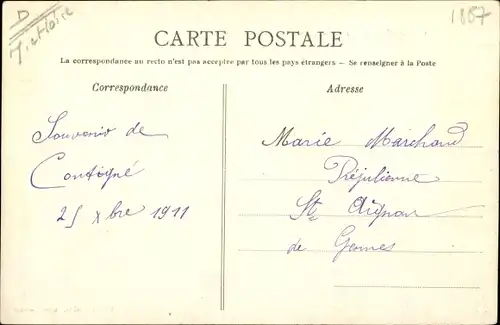 D
1807
CARTE POSTALE
La correspondance au recto n'est pas acceptée par tous les pays étrangers — Se renseigner à la Poste
Correspondance
Adresse
Souvenir de
Contigné
25 Xbre 1911
Marie Marchand
Préjulienne
St Aignan
de Gennes